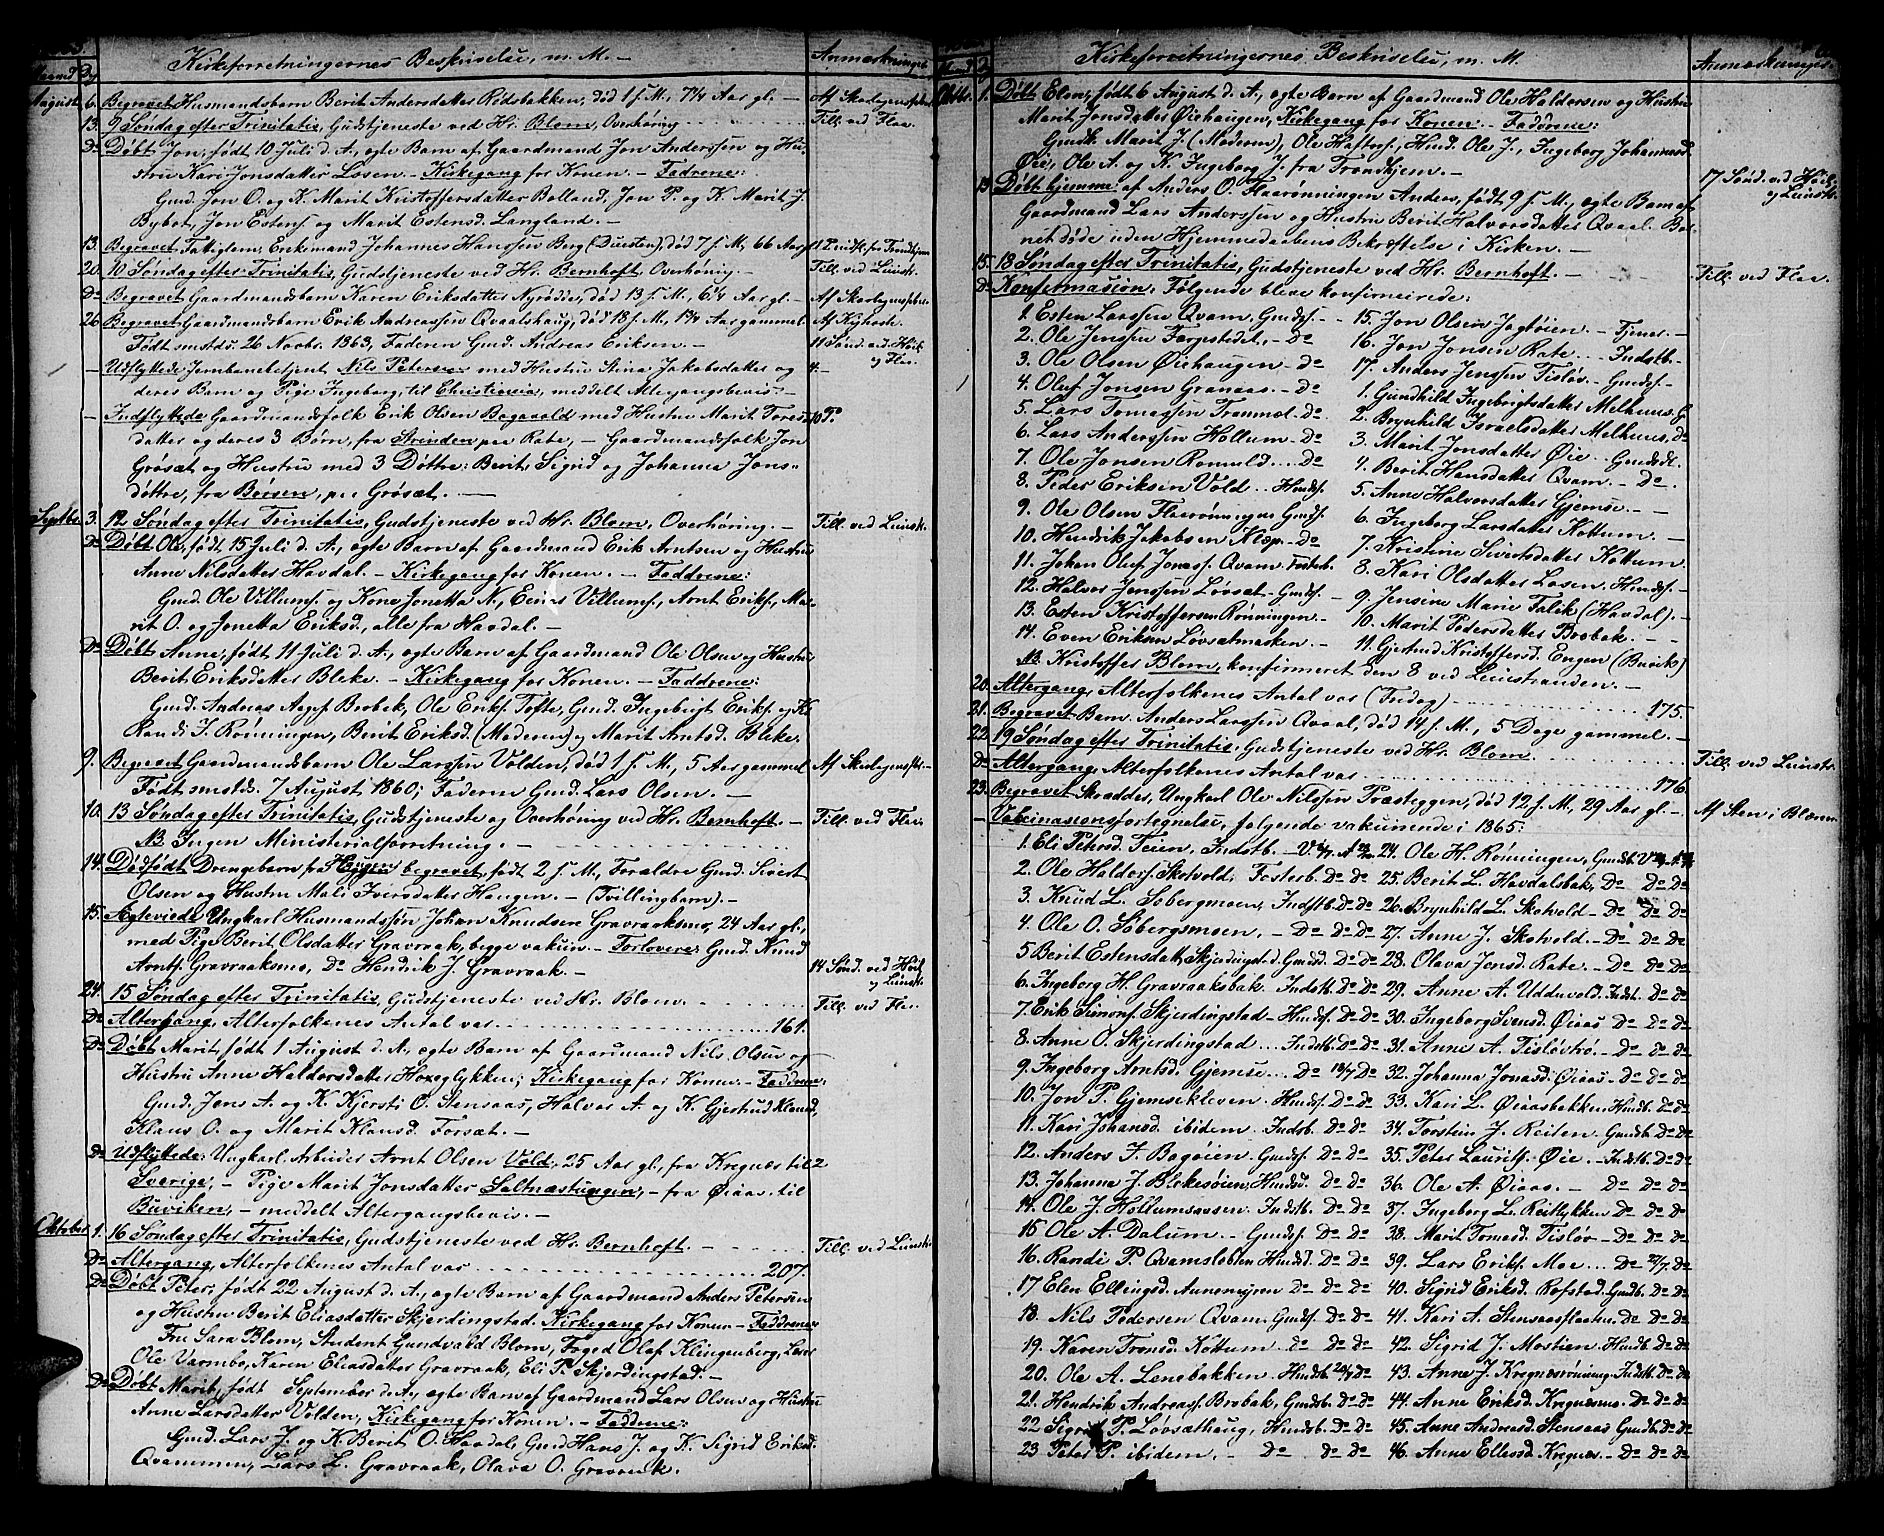 Kirkeforretningernes Beskrivelse, m. M. — Anmærkninger
Maaned Dg
August 6. Begravet Husmandsbarn Berit Andersdatter Ridsbakken, død 1 f. M., 7¼ Aar gl. — Af Skarlagensfeber
13. 9 Søndag efter Trinitatis, Gudstjeneste ved Hr. Blom, Overhøring — Till. ved Flaa.
Do Døbt Jon, født 10 Juli d. A., egte Barn af Gaardmand Jon Anderssen og Hu-
stru Kari Jonsdatter Losen. — Kirkegang for Konen. — Faddrene:
Gmd. Jon O. og K. Marit Kristoffersdatter Bolland, Jon P. og K. Marit J.
Bybot, Jon Estens. og Marit Estensd. Langland. —
13. Begravet Fattiglem, Enkemand Johannes Hanssen Berg (Duesten), død 7 f. M., 66 Aar gl.
20. 10 Søndag efter Trinitatis, Gudstjeneste ved Hr. Bernhoft, Overhørig. — Till. ved Leinstr.
Do Begravet Gaardmandsbarn Karen Eriksdatter Nyrødde, død 13 f. M., 6¼ Aar gl. — Af Skarlagensfeber
26 Begravet Gaardmandsbarn Erik Andreassen Qvaalshaug, død 18 f. M., 1¾ Aar gammel Af Kighoste.
Født smstds. 26 Novbr. 1863, Faderen Gmd. Andreas Eriksen. — 11 Sønd. ved Höil. og Flaa.
— Udflyttede Jernbanebetjent Nils Petersen med Hustru Stina Jakobsdatter og 4 —
deres Barn og Pige Ingeborg, til Christiania, meddelt Altergangsbevis —
— Indflyttede Gaardmandsfolk Erik Olsen Bagavald med Hustru Marit Tores- 10 P.
datter og deres 3 Børn, fra Strinden paa Rate, — Gaardmandsfolk Jon
Grøsæt og Hustru med 3 Døttre: Berit, Sigrid og Johanna Jons-
døttre, fra Børsen, paa Grøsæt. —
Septbr 3. 12 Søndag efter Trinitatis, Gudstjeneste ved Hr. Blom, Overhøring. — Till. ved Leinstr.
Do Døbt Ole, født 15 Juli d. A., egte Barn af Gaardmand Erik Arntsen og Hustru
Anne Nilsdatter Havdal. — Kirkegang for Konen. — Faddrene:
Gmd. Ole Villums. og Kone Jonetta N., Villums., Arnt Eriks., Ma-
rit O. og Jonetta Eriksd., alle fra Havdal. —
Do Døbt Anne, født 11 Juli d. A., egte Barn af Gaardmand Ole Olsen og Hustru
Berit Eriksdatter Bleke. — Kirkegang for Konen. — Faddrene:
Gmd. Andreas Brobek, Ole Eriks. Tofte, Gmd. Ingebrigt Eriks. og K.
Randi J. Rønningen, Berit Eriksd. (Moderen) og Marit Arntsd. Bleke.
9. Begravet Gaardmandsbarn Ole Larssen Volden, død 1 f. M., 5 Aar gammel Af Skarlagensfbr.
Født smstds. 7 August 1860; Faderen Gmd. Lars Olsen. —
10. 13 Søndag efter Trinitatis, Gudstjeneste og Overhøring ved Hr. Bernhoft. — Till. ved Flaa.
NB. Ingen Ministerialforretning. —
14. Dødfødt Drengebarn fra Haugen begravet, født 2 f. M., Forældre Gmd. Sivert
Olsen og Hustru Mali Iversdatter Haugen. — (Tvillingbarn). —
15. Ægteviede Ungkarl Husmandssøn Johan Knudsen Gravraaksmo, 24 Aar gl.,
med Pige Berit Olsdatter Gravraak, begge vakcin. — Forlovere: Gmd. Knud
Arnts. Gravraaksmo, Do Hendrik J. Gravraak. — 14 Sønd. ved Höil. og Leinstr.
24. 15 Søndag efter Trinitatis, Gudstjeneste ved Hr. Blom. — Till. ved Flaa.
Do Altergang, Alterfolkenes Antal var 161.
Do Døbt Marit, født 1 August d. A., egte Barn af Gaardmand Nils Olsen og
Hustru Anne Haldorsdatter Hoxeglykken; Kirkegang for Konen. — Faddrene:
Gmd. Jens A. og K. Kjersti O. Stensaas, Halvor A. og K. Gjertrud Klausd.,
Klaus O. og Marit Klausd. Forsæt. —
Do Udflyttede: Ungkarl Arbeider Arnt Olsen Vold, 25 Aar gl., fra Kregnæs til 2
Sverige, — Pige Marit Jonsdatter Saltnæstungen, — fra Øiaas, til
Buviken, — meddelt Altergangsbevis. —
Oktober 1. 16 Søndag efter Trinitatis, Gudstjeneste ved Hr. Bernhoft. — Till. ved Leinstr.
Do Altergang, Alterfolkenes Antal var 207.
Do Døbt Peter, født 22 August d. A., egte Barn af Gaardmand Anders Petersen
og Hustru Berit Eliasdatter Skjerdingstad. Kirkegang for Konen — Faddrene
Fru Sara Blom, Student Gundvald Blom, Foged Olaf Klingenberg,
Ole Varmbo, Karen Eliasdatter Gravraak, Eli P. Skjerdingstad. —
Do Døbt Marit, født September d. A., egte Barn af Gaardmand Lars Olsen og Hustru
Anne Larsdatter Volden, Kirkegang for Konen. — Faddrene:
Gmd. Lars J. og K. Berit O. Havdal, Gmd Hans J. og K. Sigrid Eriksd.
Qvammen, Lars L. Gravraak, Olava O. Gravraak.
Kirkeforretningernes Beskrivelse, m. M. Anmærkninger
Oktbr. 1. Døbt Elen, født 6 August d. A., egte Barn af Gaardmand Ole Haldorsen og Hustru
Marit Jonsdatter Øiehaugen, Kirkegang for Konen. — Faddrene:
Gmdk. Marit J. (Moderen), Ole Haftors., Hmd. Ole J., Ingeborg Johannesd.
Øie, Ole A. og K. Ingeborg J. fra Trondhjem. —
13 Døbt hjemme: af Anders O. Flaarønningen Anders, født 9 f. M., egte Barn af 17 Sønd. ved Höil. og Leinstr.
Gaardmand Lars Anderssen og Hustru Berit Halvorsdatter Qvaal. Bar-
net døde uden Hjemmedaabens Bekræftelse i Kirken. —
15. 18 Søndag efter Trinitatis, Gudstjeneste ved Hr. Bernhoft. — Till. ved Flaa. —
Do Konfirmasion, Følgende bleve konfirmerede:
1. Esten Larssen Qvam, Gmds. - - 15. Jon Olsen Jagtøien - Tjener. -
2. Ole Jenssen Fægestedet. - Do 16. Jon Jonsen Rate... Indstb. -
3. Ole Olsen Øiehaugen - Do 17. Anders Jenssen Tisløv. - Gmds. -
4. Oluf Jonsen Granaas - Do 1. Gundhild Ingebrigtsdatter Melhuus. G.
5. Lars Tomassen Trammel. Do 2. Brynhild Israelsdatter Melhuus. Do
6. Lars Anderssen Hollum - Do 3. Marit Jonsdatter Øie .. Gmdsdt.
7. Ole Jonsen Romuld .... Do 4. Berit Hansdatter Qvam. - Do. -
8. Peder Eriksen Vold .. Hmds. 5. Anne Halvorsdatter Gjemse. - -
9. Ole Olsen Flaarønningen Gmds. 6. Ingeborg Larsdatter Kottum. —
10. Hendrik Jakobsen Klæp. - Do 7. Kristine Sivertsdatter Kottum.
11. Johan Oluf Jonass. Qvam Fosterb. 8. Kari Olsdatter Losen. Hmds. -
12. Halvor Jonssen Løvsæt - Gmds. 9. Jensine Marie Falik (Havdal). -
13. Esten Kristoffersen Rønningen. - 10. Marit Pedersdatter Brobak. - -
14. Even Eriksen Løvsætmarken. - 11. Gjertrud Kristoffersd. Engen (Buvik)
NB. Kristoffer Blom, konfirmeret den 8 ved Leinstranden. —
20. Altergang, Alterfolkenes Antal var (Fredag) 175.
21. Begravet Barn Anders Larssen Qvaal, død 14 f. M., 5 Dage gammel. —
22. 19 Søndag efter Trinitatis, Gudstjeneste ved Hr. Blom. Till. ved Leinstr.
Do Altergang, Alterfolkenes Antal var 176.
23. Begravet Skrædder, Ungkarl Ole Nilssen Præsteggen, død 12 f. M. 29 Aar gl. — Af Sten i Blæren
— Vakcinassonsfortegnelse, følgende vakcinerede i 1865:
1. Eli Petersd. Teien, Indstb. - 24. Ole H. Rønningen, Gmdsb.
2. Ole Haldors. Skotvold, Fosterb. Do Do 25. Berit L. Havdalsbak, Do Do Do
3. Knud L. Søbergmoen, Indstb. Do Do 26. Brynhild L. Skotvold - Do Do Do
4. Ole O. Søbergsmoen. - Do Do Do 27. Anne J. Skotvold. - Do Do Do
5 Berit Estensdatt. Skjerdingst.d. Gmdd. Do Do 28. Olava Jensd. Rate. - Do Do Do
6. Ingeborg H. Gravraaksbak. Indstb. Do Do 29. Anne A. Udduvold, Indst. Do Do
7. Erik Simons. Skjerdingstad - Hmds. Do Do 30. Ingeborg Svensd. Øiaas Do Do Do
8. Anne O. Skjerdingstad ... Indstb. Do Do 31. Anne A. Tisløvtrø. - Do Do Do
9. Ingeborg Arntsd. Gjemse... Do Do 32. Johanna Jonasd. Øiaas Do Do Do
10. Jon P. Gjemsekleven. Hmds. Do Do 33. Kari L. Øiaasbakken Hmdb. Do Do
11. Kari Johansd. ibidem. Indsb. Do Do 34. Torstein J. Reiten. Gmdb. Do Do
12. Anders J. Bagøien. Gmds. Do Do 35. Peter Laurits. Øie. - Indstb. Do Do
13. Johanna J. Blekesøien, Hmdsd. Do Do 36. Ole A. Øiaas. - Do Do Do
14. Ole J. Hollumsaasen. Indstb. Do Do 37. Ingeborg L. Reitlykken Do Do Do
15 Ole A. Dalum. - Gmds. Do Do 38. Marit Tomasd. Tisløv - Do Do Do
16. Randi P. Qvamsløkken Hmdsd. Do Do 39. Lars Eriks. Moe... Do 21/7 Do
17 Elen Ellingsd. Aunemyren Do Do Do 40. Sigrid Eriksd. Rofstad. Gmdb. Do Do
18. Nils Pedersen Qvam. Gmds. Do Do 41. Kari A. Stensaasflaaten. Do Do Do
19. Karen Tronsd. Kottum. Do Do Do 42. Sigrid J. Mostien. Hmdb. Do Do
20. Ole A. Lenebakken, Hmdsb. Do 43. Anne J. Kregnæsrønning. Indstb. Do Do
21. Hendrik Andreass. Brobak, Gmdsb. Do Do 44. Anne Eriksd. Kregnæsmo. Do Do Do
22 P. Løvsæthaug, Hmdsb. Do Do 45. Anne Andreasd. Stensaas Gmdb. Do Do
23 Peter P. ibidem. - Do Do Do 46. Anne Ellevsd. Kregnæs. - Do Do Do